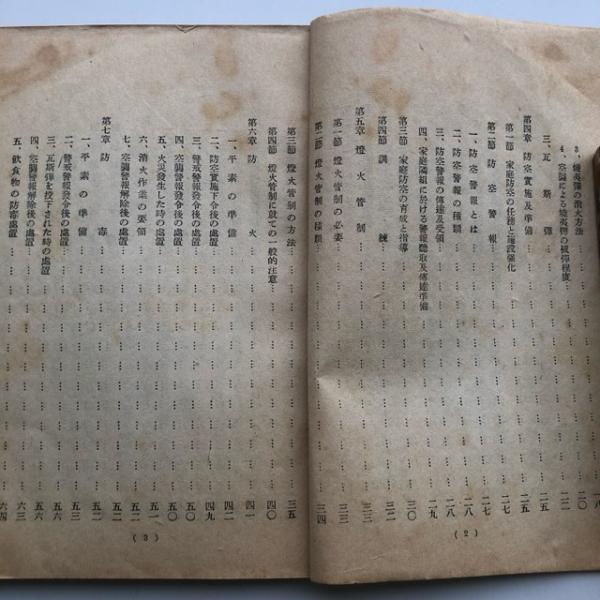 3 燒夷彈の消火方法……二〇
三、瓦斯彈……二五
第四章 防空實施及準備
第一節 家庭防空の任務と施設強化
第二節 防空警報……二七
一、防空警報とは……二七
二、防空警報の種類……二八
三、防空警報の傳達及受領……二八
四、家庭隣組に於ける警報聽取及傳達準備……二九
第三節 家庭防空の育成と指導
第四節 訓練……三二
第五章 燈火管制
第一節 燈火管制の必要……三三
第二節 燈火管制の種類……三四
(2)
第三節 燈火管制の方法……三五
第四節 燈火管制に就ての一般的注意……四〇
第六章 防火……四一
一、平素の準備……四二
二、防空實施下令後の處置……四九
三、警戒警報發令後の處置……五〇
四、空襲警報發令後の處置……五〇
五、火災發生した時の處置……五一
六、消火作業の要領……五二
七、空襲警報解除後の處置……五二
第七章 防毒……五二
一、平素の準備……五三
二、警戒警報發令後の處置……五五
三、瓦斯彈を投下された時の處置……五六
四、空襲警報解除後の處置……六三
五、飮食物の防毒處置……六四
(3)